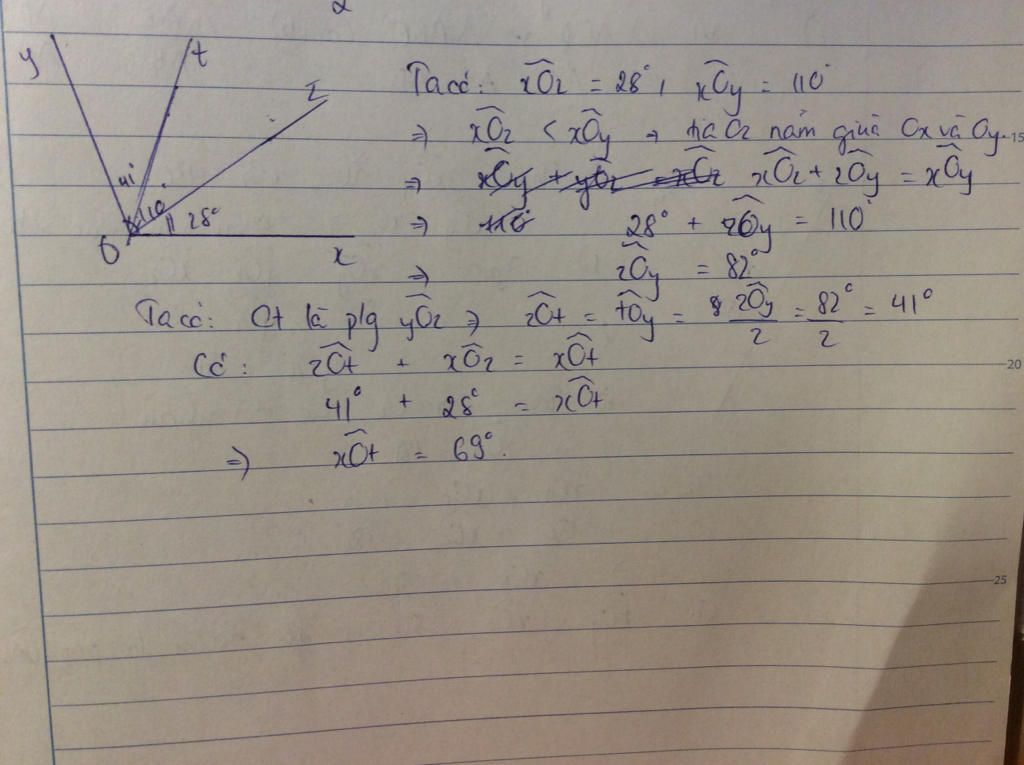 2
y t z
41 110 28°
O x
Ta có: xOz = 28°, xOy = 110°
⇒ xOz < xOy → tia Oz nằm giữa Ox và Oy.
⇒ xOy + yOz = xOz xOz + zOy = xOy
⇒ 110° 28° + zOy = 110°
⇒ zOy = 82°
Ta có: Ot là p/g yOz ⇒ zOt = tOy = zOy/2 = 82°/2 = 41°
Có: zOt + xOz = xOt
41° + 28° = xOt
⇒ xOt = 69°.
15
20
25